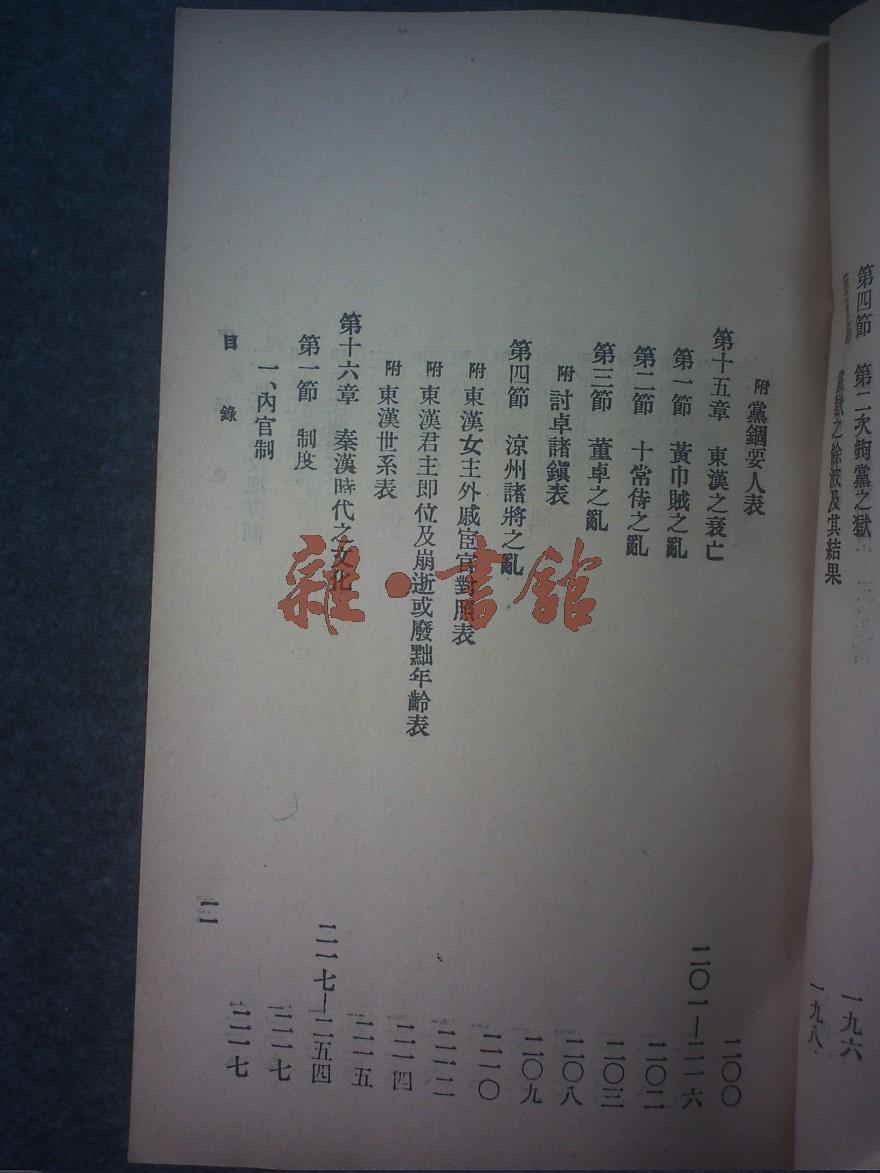 第四節 第二次鉤黨之獄 一九六
黨獄之餘波及其結果 一九八
附 黨錮要人表 二〇〇
第十五章 東漢之衰亡 二〇一—二一六
第一節 黃巾賊之亂 二〇二
第二節 十常侍之亂 二〇三
第三節 董卓之亂 二〇八
附 討卓諸鎭表 二〇九
第四節 涼州諸將之亂 二一〇
附 東漢女主外戚宦官對照表 二一二
附 東漢君主即位及崩逝或廢黜年齡表 二一四
附 東漢世系表 二一五
第十六章 秦漢時代之文化 二一七—二五四
第一節 制度 二一七
一、內官制 二一七
目錄
雜·書館